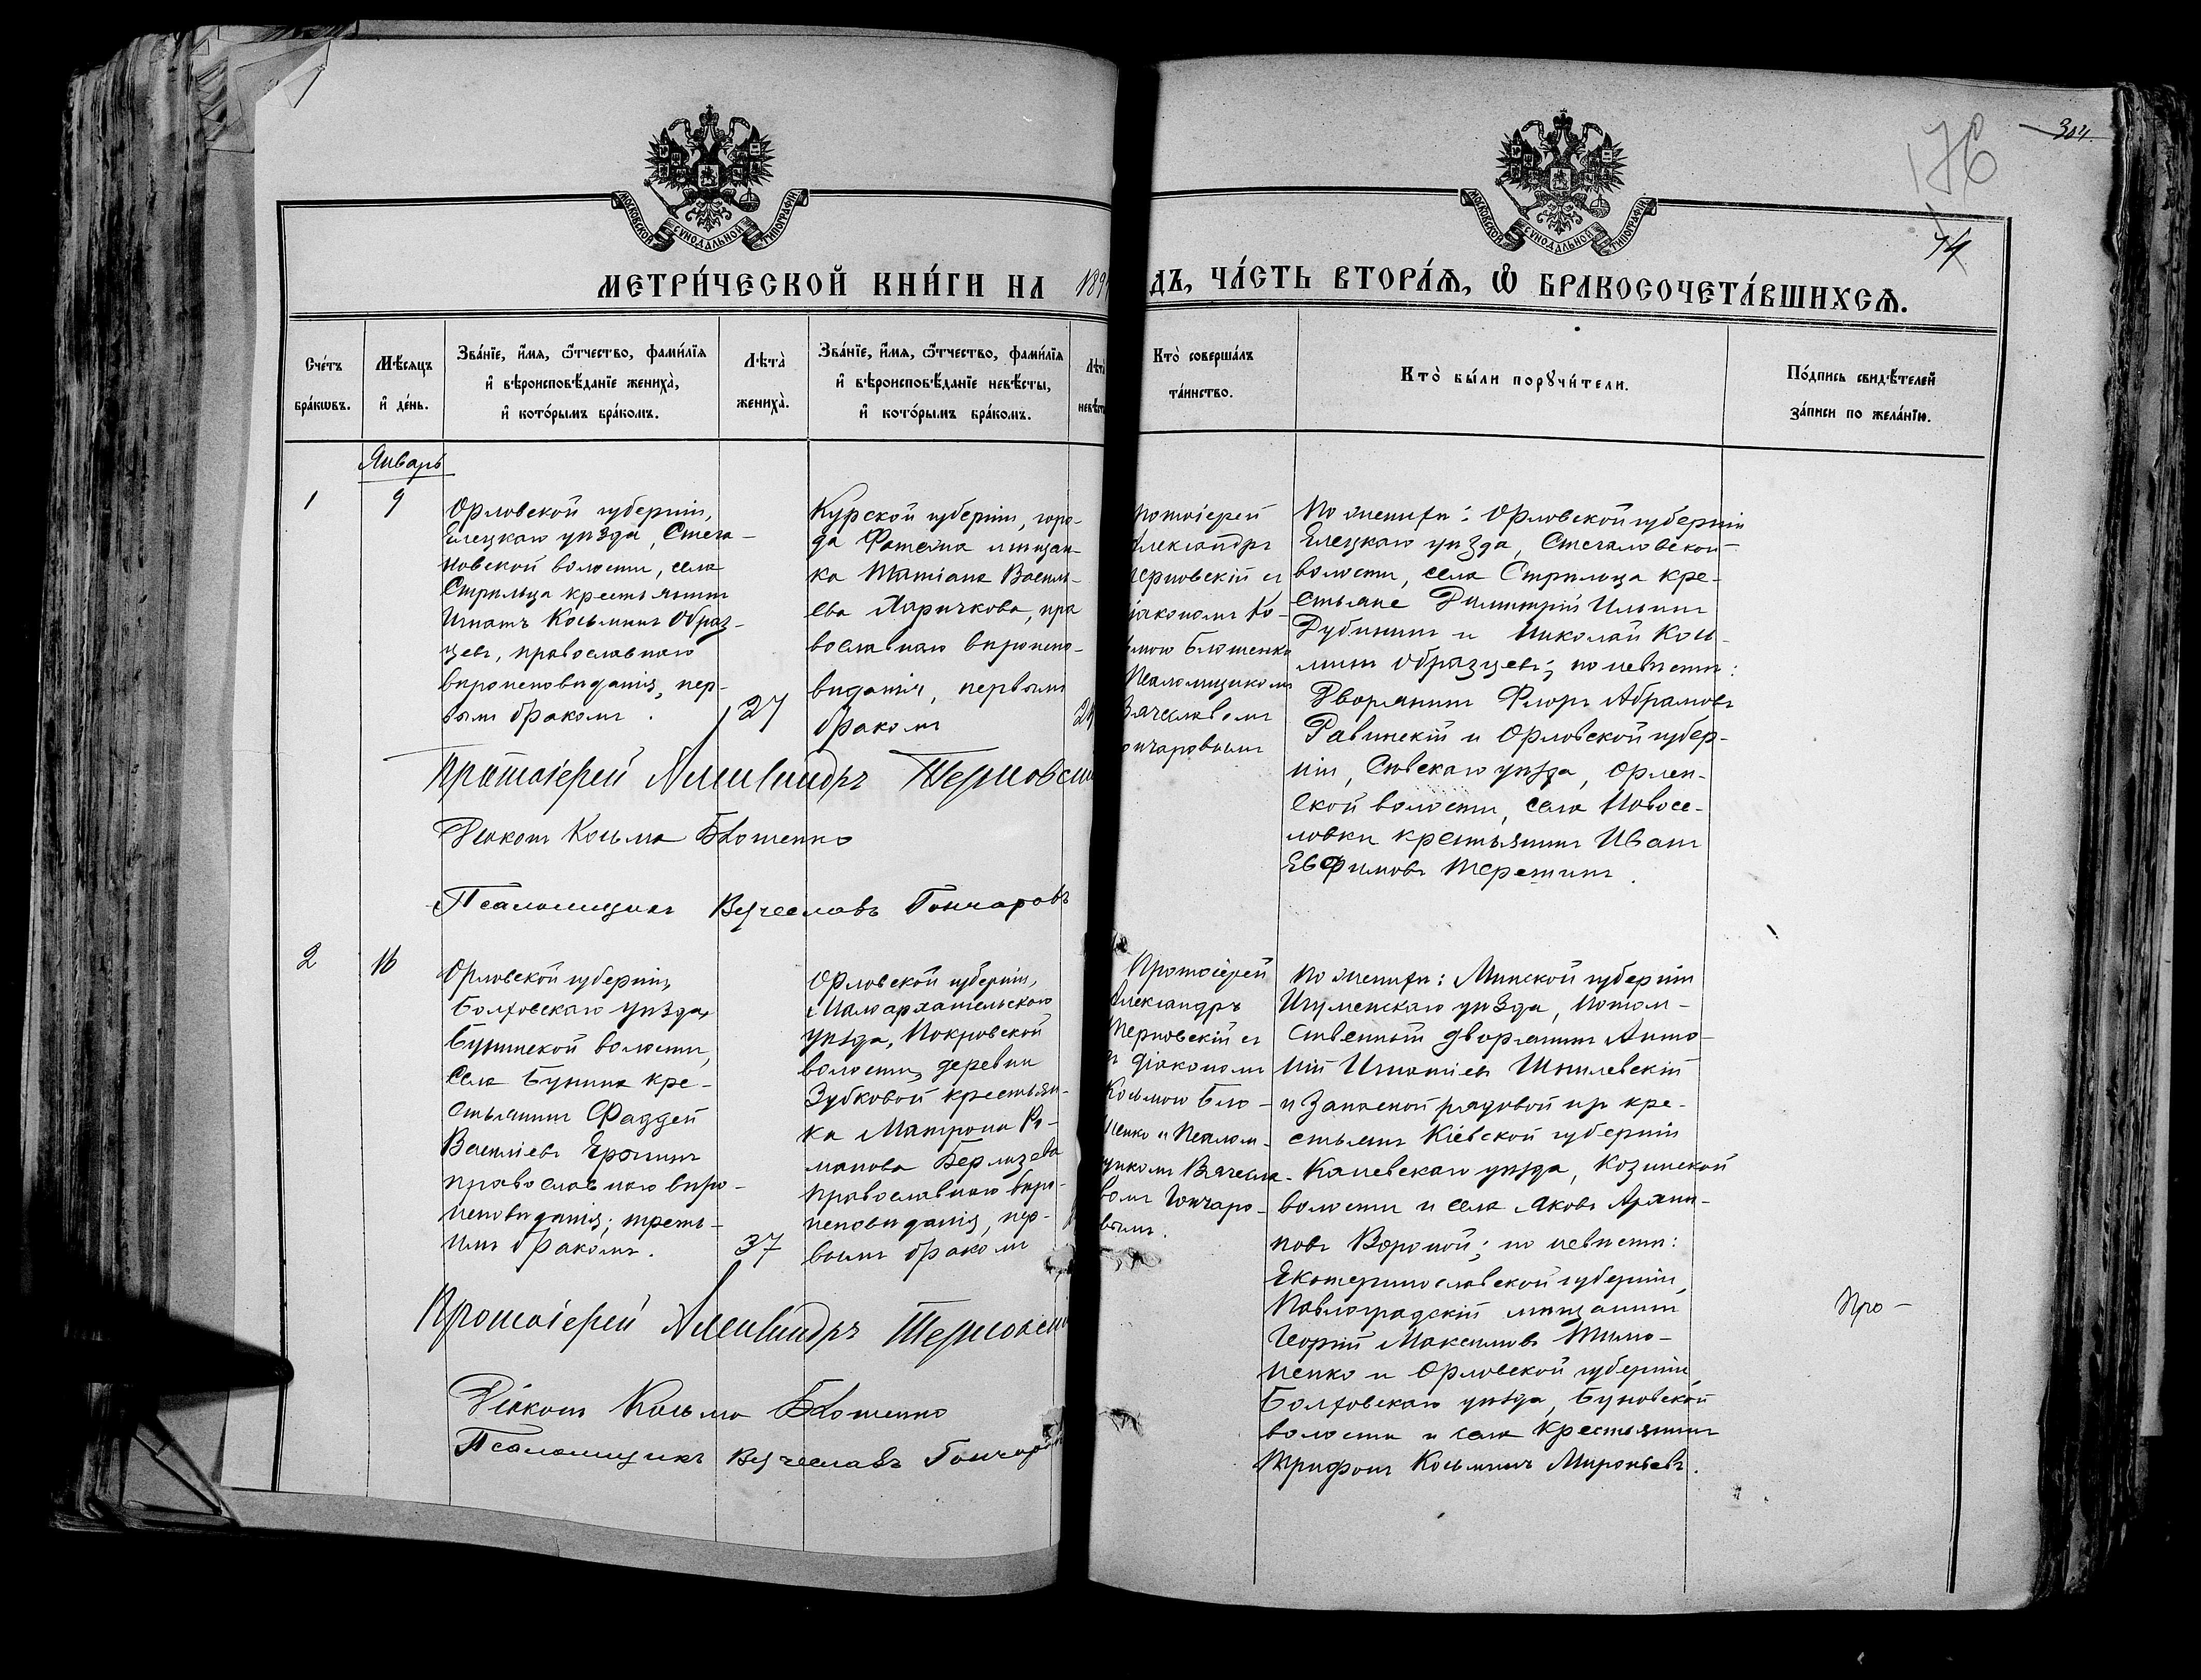 176
304
14
МОСКОВСКОЙ СѴНОДАЛЬНОЙ ТИПОГРАФІИ
МОСКОВСКОЙ СѴНОДАЛЬНОЙ ТИПОГРАФІИ
МЕТРИ́ЧЕСКОЙ КНИ́ГИ НА 189
ДЪ, ЧА́СТЬ ВТОРА́Ѧ, Ѡ҆ БРАКОСОЧЕТА́ВШИХСѦ.
Сче́тъ
бра́кѡвъ.
Мѣ́сяцъ
и҆ де́нь.
Зва́нїе, и҆́мя, ѻ҆́тчество, фами́лїя
и҆ вѣроисповѣ́данїе жениха̀,
и҆ кото́рымъ бра́комъ.
Лѣта̀
жениха̀.
Зва́нїе, и҆́мя, ѻ҆́тчество, фами́лїя
и҆ вѣроисповѣ́данїе невѣ́сты,
и҆ кото́рымъ бра́комъ.
Лѣта̀
невѣ́ст
Кто̀ соверша́лъ
та́инство.
Кто̀ бы́ли порꙋчи́тели.
По́дпись свидѣ́телей
за́писи по жела́нїю.
Январь
1
9
Орловской губерніи,
Елецкаго уѣзда, Стега-
ловской волости, села
Стрѣльца крестьянинъ
Игнатъ Косьминъ Образ-
цевъ, православнаго
вѣроисповѣданія, пер-
вымъ бракомъ.
27
Курской губерніи, горо-
да Фатежа мѣщан-
ка Татіана Василь-
ева Ларичкова, пра
вославнаго вѣроиспо-
вѣданія, первымъ
бракомъ
2
ротоіерей
Александръ
Терновскій съ
діакономъ Ко-
сьмою Блошенко
Псаломщикомъ
Вячеславомъ
ончаровымъ
По женихѣ: Орловской губерніи
Елецкаго уѣзда, Стегаловской
волости, села Стрѣльца кре-
стьяне Димитрій Ильинъ
Дубининъ и Николай Кось-
минъ Образцевъ; по невѣстѣ:
Дворянинъ Флоръ Абрамовъ
Равинскій и Орловской губер-
ніи, Сѣвскаго уѣзда, Орлен-
ской волости, села Новосе-
ловки крестьянинъ Иванъ
Евфимовъ Терешинъ.
Протоіерей Александръ Терновскі
Діаконъ Косьма Блошенко
Псаломщикъ Вячеславъ Гончаровъ
2
16
Орловской губерніи,
Болховскаго уѣзда,
Бунинской волости,
села Бунина кре-
стьянинъ Фаддей
Василіевъ Ерохинъ
православнаго вѣро-
исповѣданія; треть-
имъ бракомъ.
37
Орловской губерніи,
Малоархангельскаго
уѣзда, Покровской
волости, деревни
Зубковой крестьян-
ка Матрона Ро-
манова Берлизева
православнаго вѣро-
исповѣданія, пер-
вымъ бракомъ
Протоіерей
Александръ
Терновскій съ
діакономъ
Косьмою Бло-
шенко и Псалом-
щикомъ Вячесла-
вомъ Гончаро-
вымъ.
По женихѣ: Минской губерніи
Игуменскаго уѣзда, потом-
ственный дворянинъ Анто-
ній Игнатіевъ Шпилевскій
и Запасной рядовой изъ кре-
стьянъ Кіевской губерніи
Каневскаго уѣзда, Козинской
волости и села Яковъ Архи-
повъ Вороной; по невѣстѣ:
Екатеринославской губерніи,
Павлоградскій мѣщанинъ
Георгій Максимовъ Тимо-
шенко и Орловской губерніи,
Болховскаго уѣзда, Буновской
волости и села крестьянинъ
Трифонъ Косьминъ Мироньевъ.
Протоіерей Александръ Терновскі
Діаконъ Косьма Блошенко
Псаломщикъ Вячеславъ Гончаров
Про-